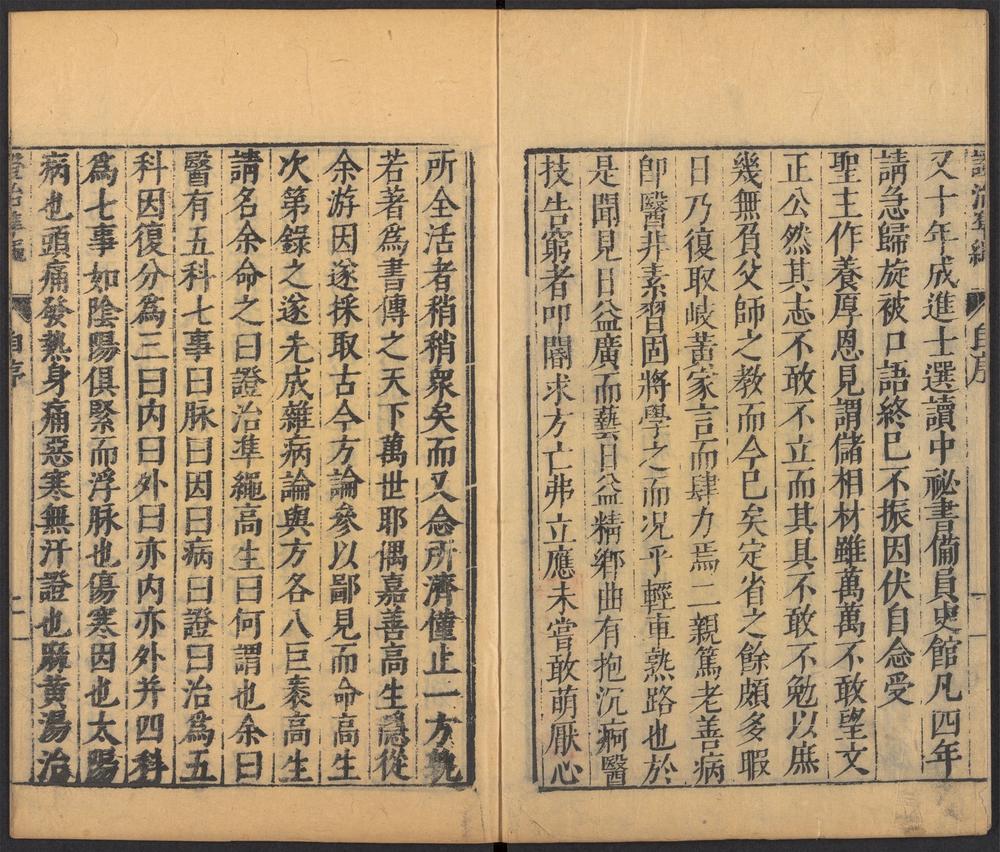 證治準繩 自序
又十年成進士選讀中祕書備員史館凡四年
請急歸旋被口語終已不振因伏自念受
聖主作養厚恩見謂儲相材雖萬萬不敢望文
正公然其志不敢不立而其具不敢不勉以庶
幾無負父師之教而今已矣定省之餘頗多暇
日乃復取岐黃家言而肆力焉二親篤老善病
卽醫非素習固將學之而況乎輕車熟路也於
是聞見日益廣而藝日益精鄉曲有抱沉痾醫
技告窮者叩閽求方亡弗立應未嘗敢萌厭心
所全活者稍稍眾矣而又念所濟僅止一方孰
若著爲書傳之天下萬世耶偶嘉善高生隱從
余游因遂採取古今方論參以鄙見而命高生
次第錄之遂先成雜病論與方各八巨袠高生
請名余命之曰證治準繩高生曰何謂也余曰
醫有五科七事曰脉曰因曰病曰證曰治爲五
科因復分爲三曰内曰外曰亦内亦外并四科
爲七事如陰陽俱緊而浮脉也傷寒因也太陽
病也頭痛發熱身痛惡寒無汗證也麻黃湯治
證治準繩 自序 二